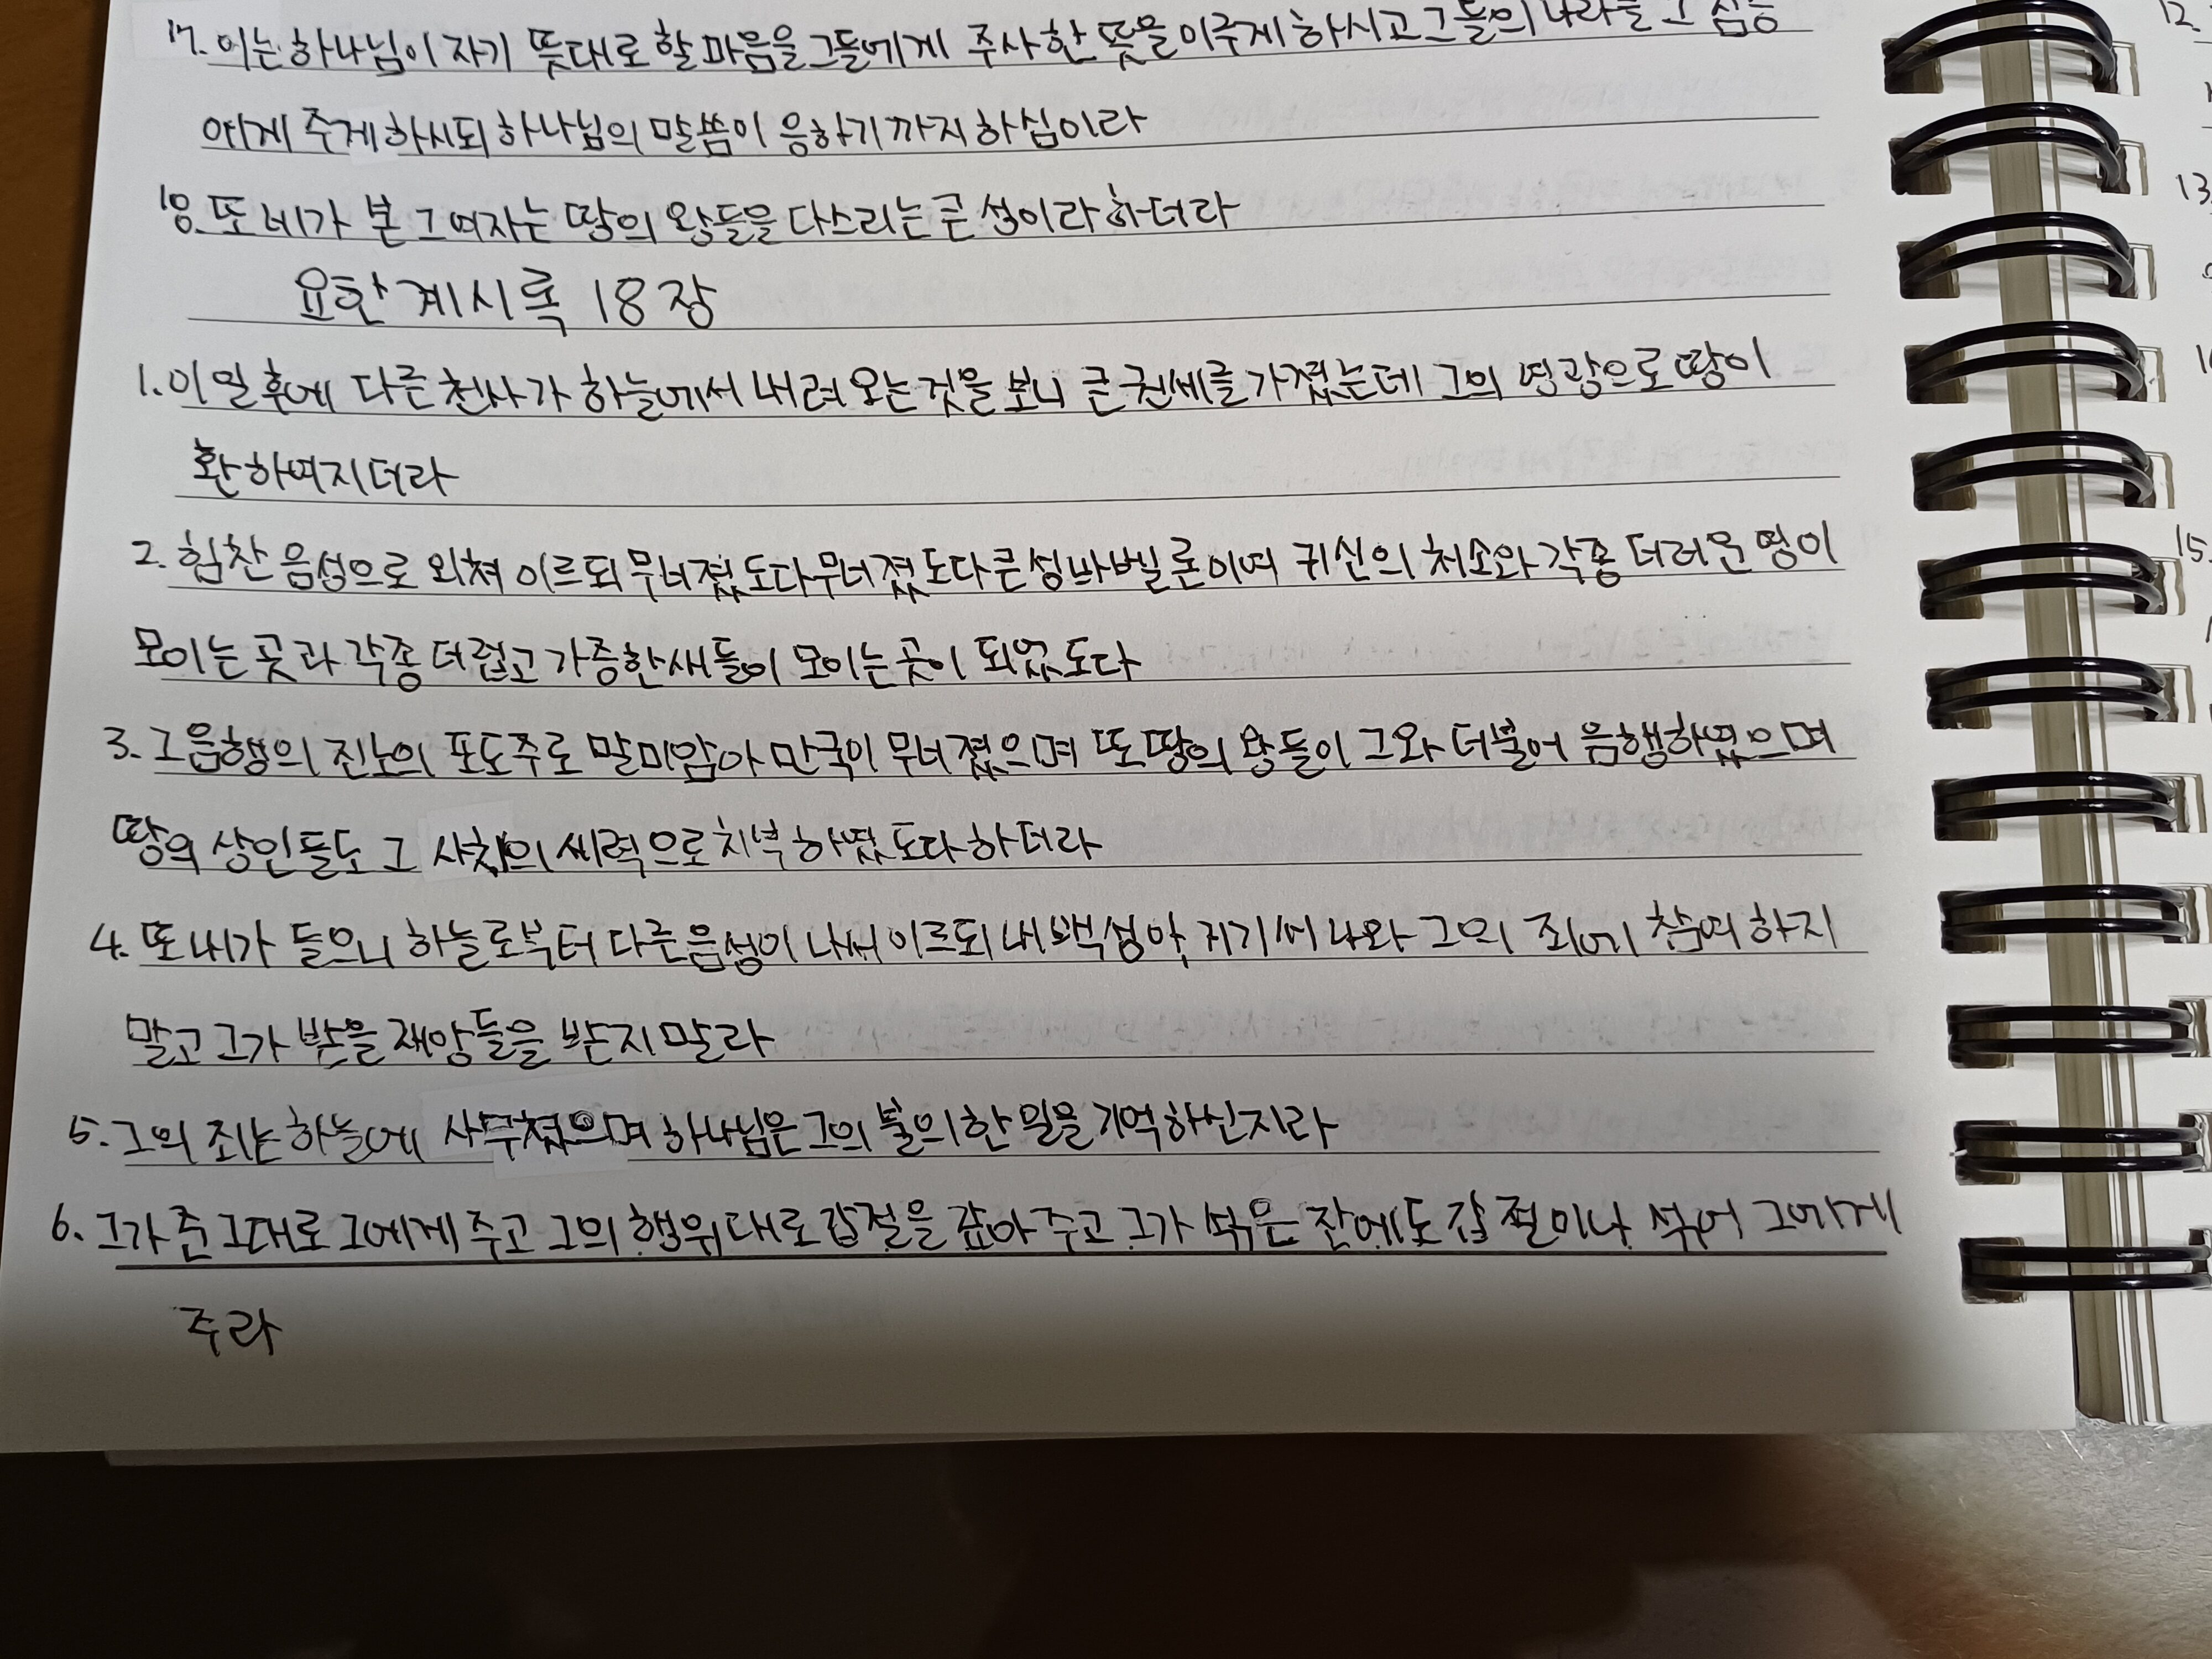 17. 이는 하나님이 자기 뜻대로 할 마음을 그들에게 주사 한 뜻을 이루게 하시고 그들의 나라를 그 짐승
에게 주게 하시되 하나님의 말씀이 응하기까지 하심이라
18. 또 네가 본 그 여자는 땅의 왕들을 다스리는 큰 성이라 하더라
요한계시록 18장
1. 이 일 후에 다른 천사가 하늘에서 내려 오는 것을 보니 큰 권세를 가졌는데 그의 영광으로 땅이
환하여지더라
2. 힘찬 음성으로 외쳐 이르되 무너졌도다 무너졌도다 큰 성 바벨론이여 귀신의 처소와 각종 더러운 영이
모이는 곳과 각종 더럽고 가증한 새들이 모이는 곳이 되었도다
3. 그 음행의 진노의 포도주로 말미암아 만국이 무너졌으며 또 땅의 왕들이 그와 더불어 음행하였으며
땅의 상인들도 그 사치의 세력으로 치부하였도다 하더라
4. 또 내가 들으니 하늘로부터 다른 음성이 나서 이르되 내 백성아, 거기서 나와 그의 죄에 참여하지
말고 그가 받을 재앙들을 받지 말라
5. 그의 죄는 하늘에 사무쳤으며 하나님은 그의 불의한 일을 기억하신지라
6. 그가 준 그대로 그에게 주고 그의 행위대로 갑절을 갚아 주고 그가 섞은 잔에도 갑절이나 섞어 그에게
주라
12.
13.
15.